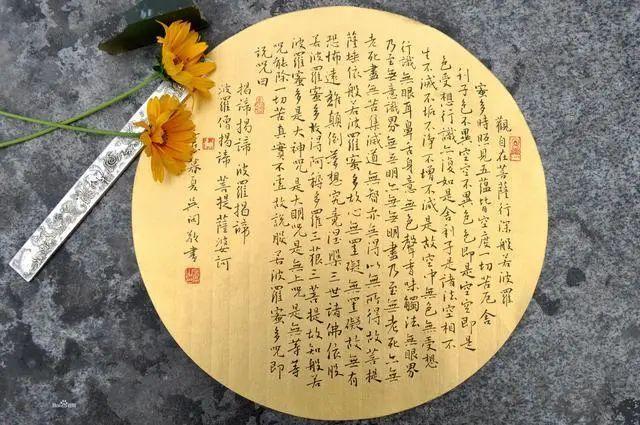 觀自在菩薩行深般若波羅
蜜多時照見五蘊皆空度一切苦厄舍
利子色不異空空不異色色即是空空即是
色受想行識亦復如是舍利子是諸法空相不
生不滅不垢不淨不增不減是故空中無色無受想
行識無眼耳鼻舌身意無色聲香味觸法無眼界
乃至無意識界無無明亦無無明盡乃至無老死亦無
老死盡無苦集滅道無智亦無得以無所得故菩提
薩埵依般若波羅蜜多故心無罣礙無罣礙故無有
恐怖遠離顛倒夢想究竟涅槃三世諸佛依般
若波羅蜜多故得阿耨多羅三藐三菩提故知般若
波羅蜜多是大神咒是大明咒是無上咒是無等等
咒能除一切苦真實不虛故說般若波羅蜜多咒即
說咒曰
揭諦揭諦 波羅揭諦
波羅僧揭諦 菩提薩婆訶
夏吳問敬書